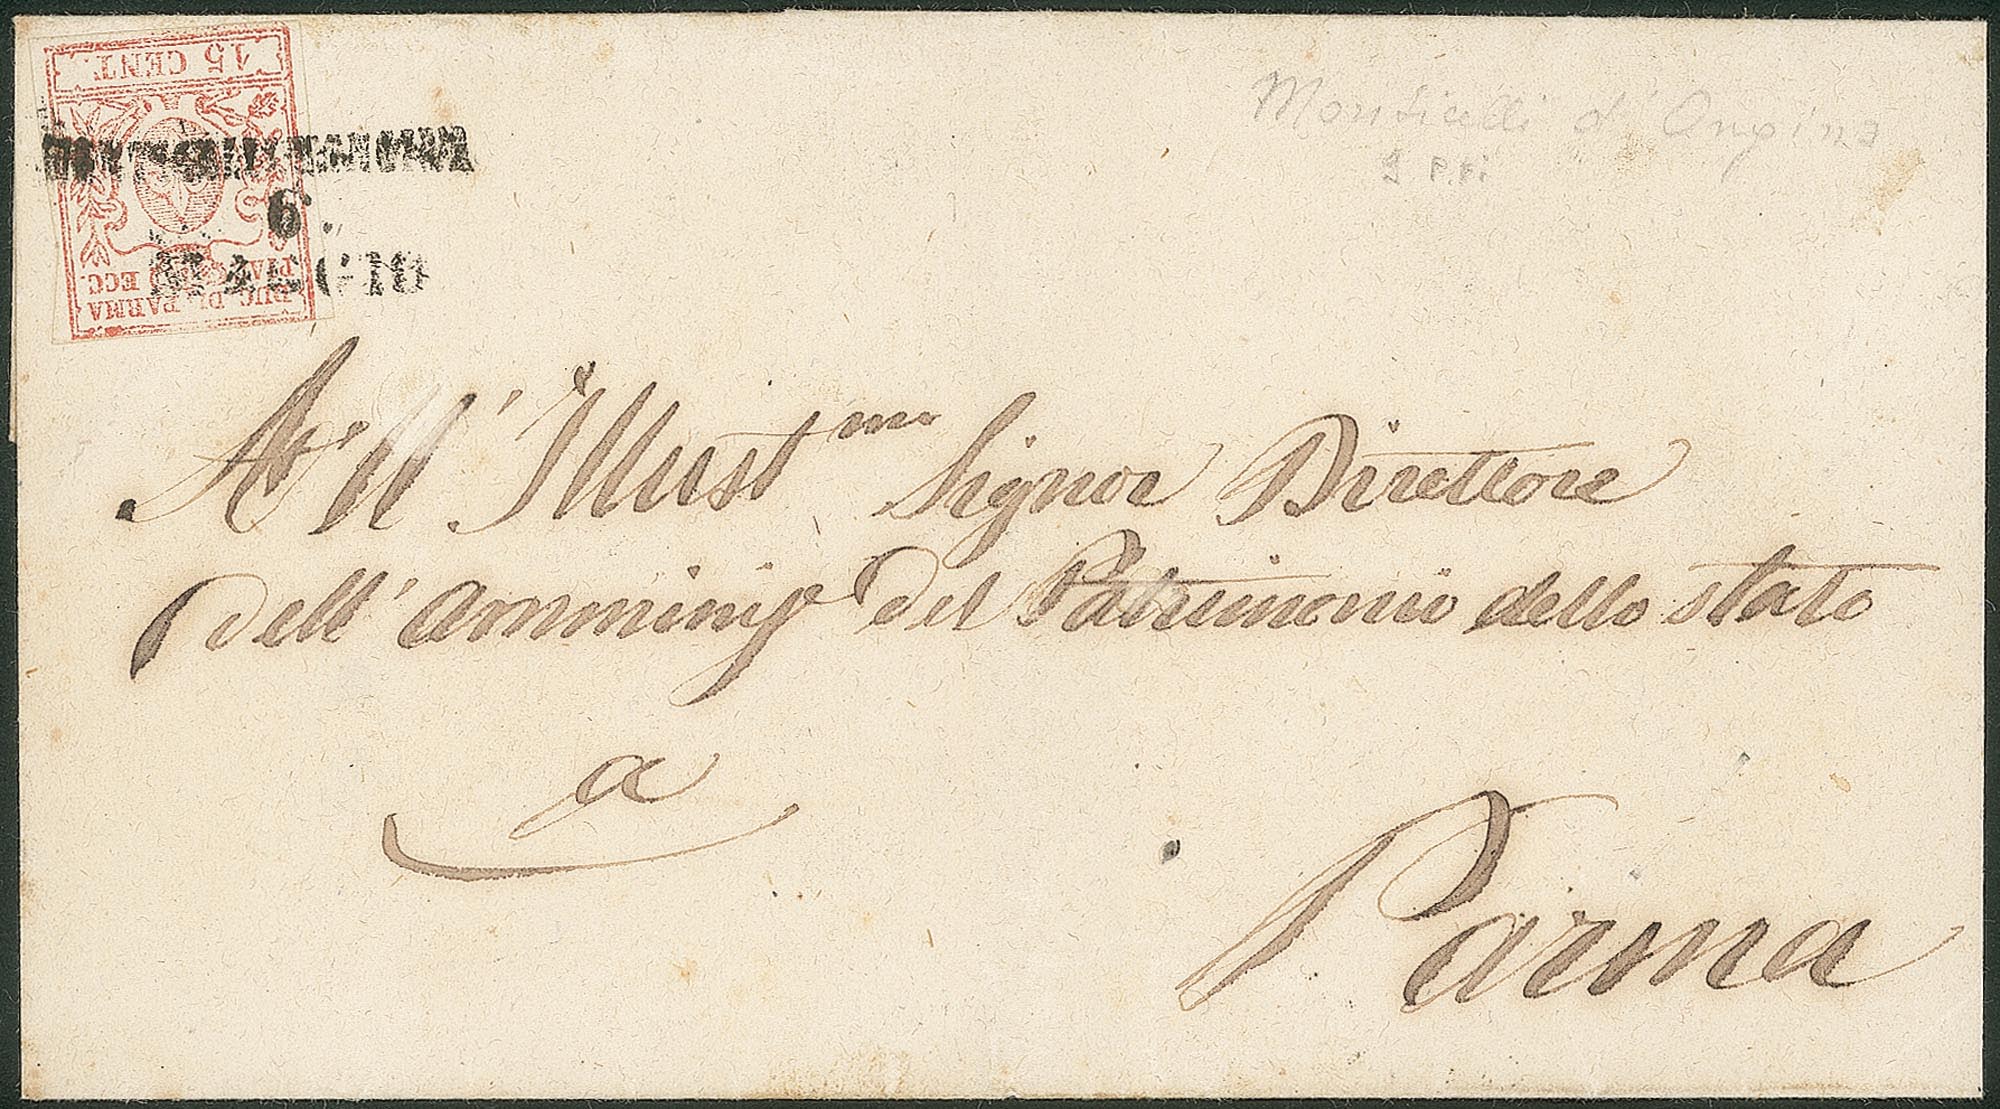 15 CENT.
DUC. DI PARMA
PIAC. ECC.
6.
MAGGIO
Monticelli d'Ongina
All' Illust.mo Signor Direttore
dell' Amminis.e del Patrimonio dello Stato
a
Parma